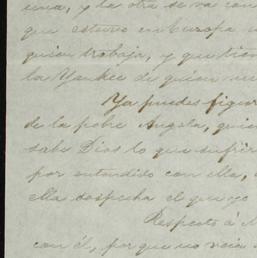 una, y la otra se va con
que estuvo en Europa
quien trabaja, y que tien
la Yankée de quien me
Ya puedes figur
de la pobre Angela, quie
sabe Dios lo que sufrir
por entendido con ella,
ella sospecha el que yo
Respecto á M
con él, porque no veia